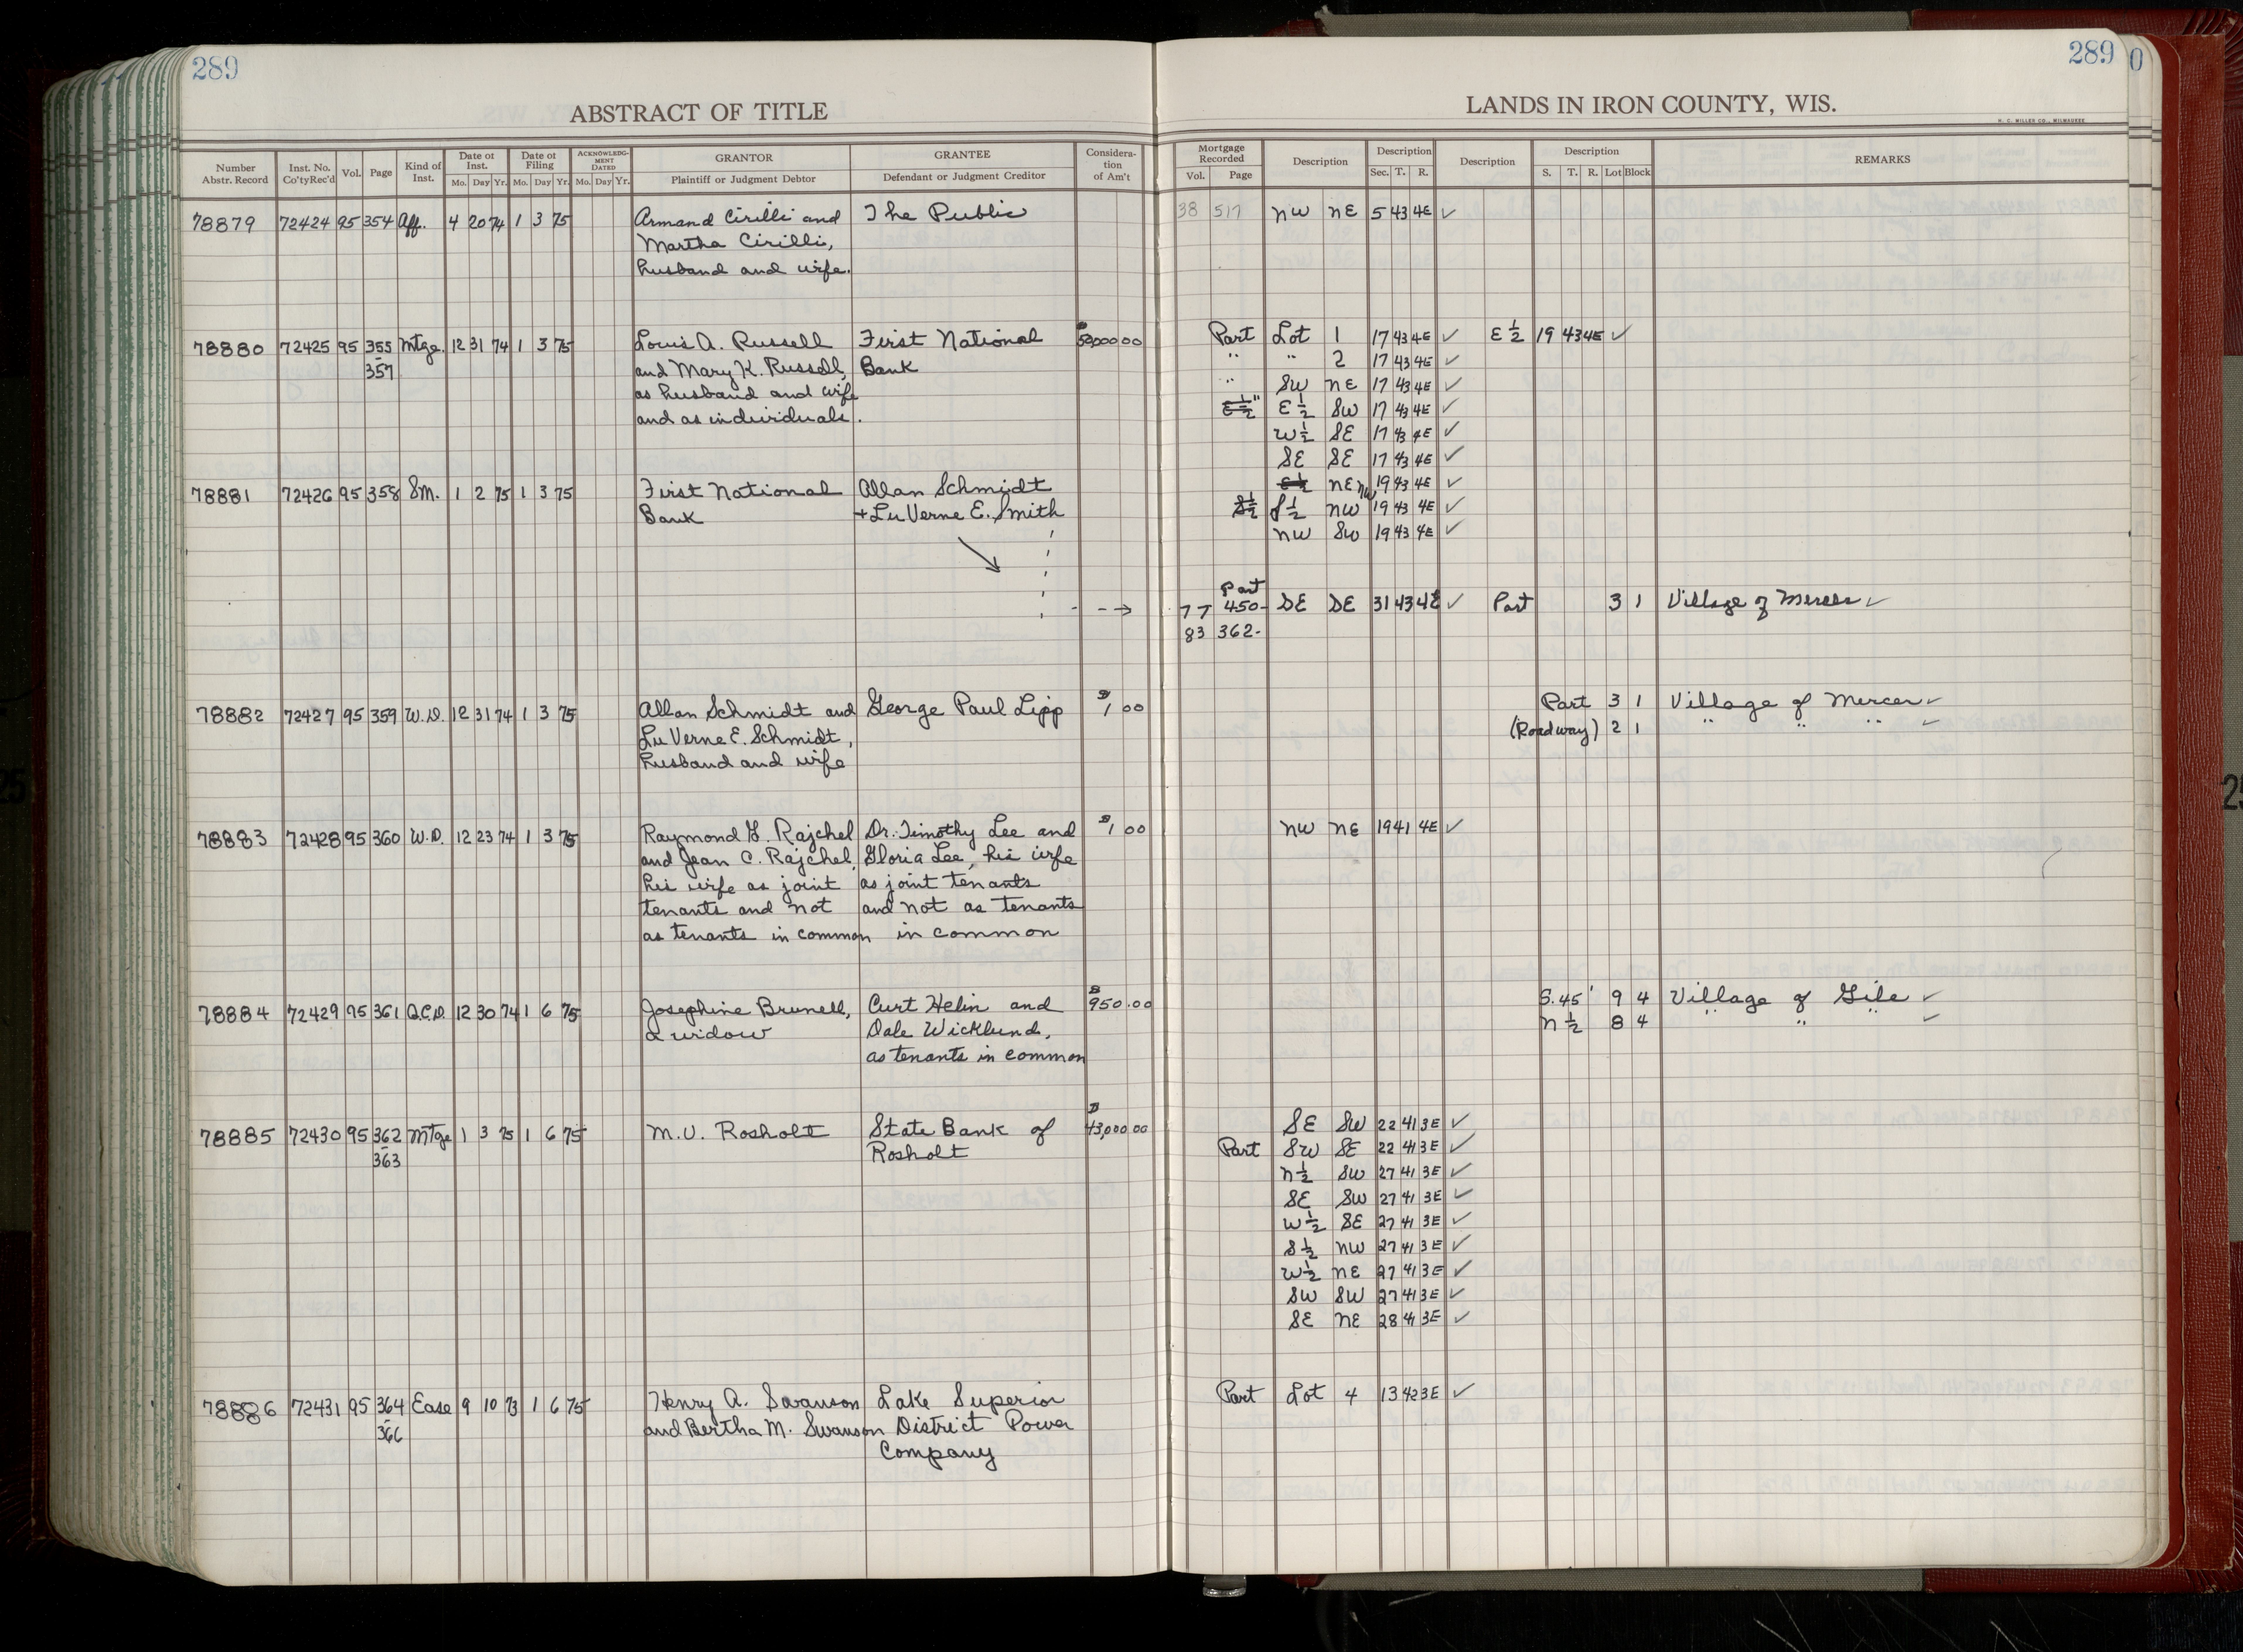 289
289
0
ABSTRACT OF TITLE
LANDS IN IRON COUNTY, WIS.
H. C. MILLER CO., MILWAUKEE
Number Abstr. Record | Inst. No. Co'tyRec'd | Vol. | Page | Kind of Inst. | Date of Inst. Mo. Day Yr. | Date of Filing Mo. Day Yr. | ACKNOWLEDGMENT DATED Mo. Day Yr. | GRANTOR Plaintiff or Judgment Debtor | GRANTEE Defendant or Judgment Creditor | Consideration of Am't | Mortgage Recorded Vol. Page | Description | Description Sec. T. R. | Description | Description S. T. R. Lot Block | REMARKS
78879 72424 95 354 Aff. 4 20 74 1 3 75 Armand Cirilli and The Public 38 517 NW NE 5 43 4E ✓
Martha Cirilli,
husband and wife.
78880 72425 95 355 Mtge. 12 31 74 1 3 75 Louis A. Russell First National $50,000 00 Part Lot 1 17 43 4E ✓ E 1/2 19 43 4E ✓
- 357 and Mary K. Russell, Bank " " 2 17 43 4E ✓
as husband and wife " SW NE 17 43 4E ✓
and as individuals. E 1/2 " E 1/2 SW 17 43 4E ✓
W 1/2 SE 17 43 4E ✓
SE SE 17 43 4E ✓
78881 72426 95 358 SM. 1 2 75 1 3 75 First National Allan Schmidt E 1/2 NE NW 19 43 4E ✓
Bank + LuVerne E. Smith S 1/2 S 1/2 NW 19 43 4E ✓
NW SW 19 43 4E ✓
Part
77 450- SE SE 31 43 4E ✓ Part 3 1 Village of Mercer ✓
83 362-
78882 72427 95 359 W.D. 12 31 74 1 3 75 Allan Schmidt and George Paul Lipp $1 00 Part 3 1 Village of Mercer ✓
LuVerne E. Schmidt, (Roadway) 2 1 " " " ✓
husband and wife
78883 72428 95 360 W.D. 12 23 74 1 3 75 Raymond G. Rajchel Dr. Timothy Lee and $1 00 NW NE 19 41 4E ✓
and Jean C. Rajchel, Gloria Lee, his wife
his wife as joint as joint tenants
tenants and not and not as tenants
as tenants in common in common
78884 72429 95 361 Q.C.D. 12 30 74 1 6 75 Josephine Brunell, Curt Helin and $950.00 S. 45' 9 4 Village of Gile ✓
a widow Dale Wicklund, N 1/2 8 4 " " " ✓
as tenants in common
78885 72430 95 362 Mtge 1 3 75 1 6 75 M.V. Rosholt State Bank of $43,000.00 SE SW 22 41 3E ✓
- 363 Rosholt Part SW SE 22 41 3E ✓
N 1/2 SW 27 41 3E ✓
SE SW 27 41 3E ✓
W 1/2 SE 27 41 3E ✓
S 1/2 NW 27 41 3E ✓
W 1/2 NE 27 41 3E ✓
SW SW 27 41 3E ✓
SE NE 28 41 3E ✓
78886 72431 95 364 Ease 9 10 73 1 6 75 Henry A. Swanson Lake Superior Part Lot 4 13 42 3E ✓
- 366 and Bertha M. Swanson District Power
Company